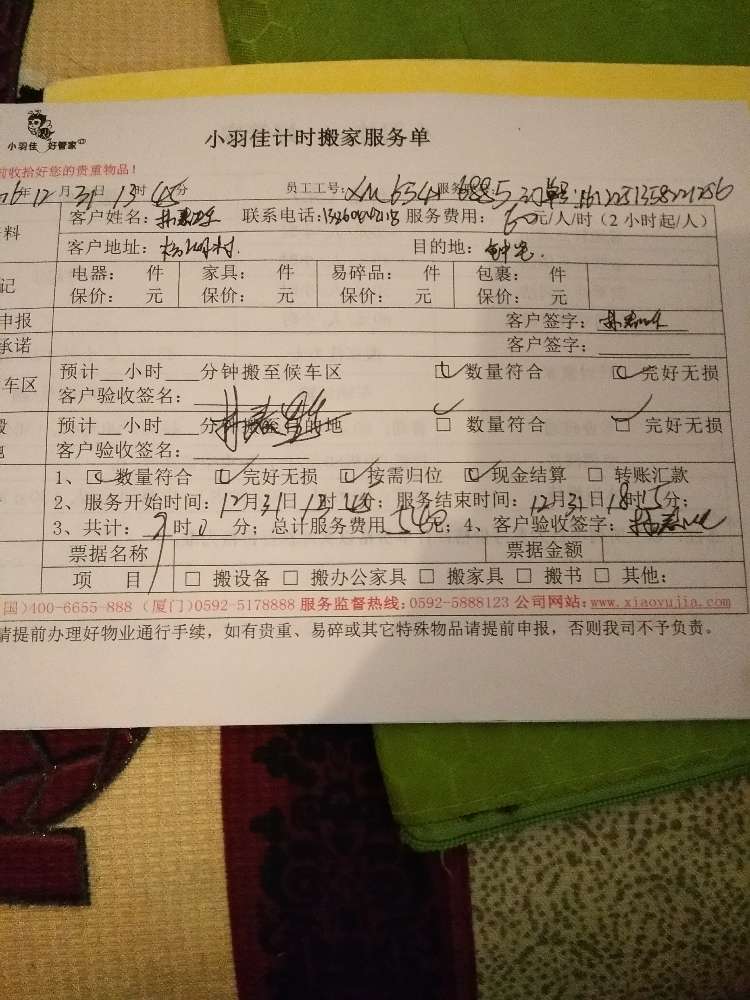 小羽佳 好管家
小羽佳计时搬家服务单
前收拾好您的贵重物品！
16年12月31日13时45分 员工工号：XM654 6885 订单号：1612251358221256
料 客户姓名： 联系电话： 服务费用：60元/人/时（2小时起/人）
客户地址： 村 目的地：
记 电器： 件 家具： 件 易碎品： 件 包裹： 件
保价： 元 保价： 元 保价： 元 保价： 元
申报 客户签字：
承诺 客户签字：
车区 预计__小时___分钟搬至候车区 数量符合 完好无损
客户验收签名：
预计__小时___分钟搬至目的地 □ 数量符合 □ 完好无损
客户验收签名：
1、□ 数量符合 □ 完好无损 □ 按需归位 □ 现金结算 □ 转账汇款
2、服务开始时间：12月31日13时45分；服务结束时间：12月31日18时15分；
3、共计：9时0分；总计服务费用540元；4、客户验收签字：
票据名称 票据金额
项 目 □ 搬设备 □ 搬办公家具 □ 搬家具 □ 搬书 □ 其他：
国）400-6655-888（厦门）0592-5178888 服务监督热线：0592-5888123 公司网站：www.xiaoyujia.com
请提前办理好物业通行手续，如有贵重、易碎或其它特殊物品请提前申报，否则我司不予负责。